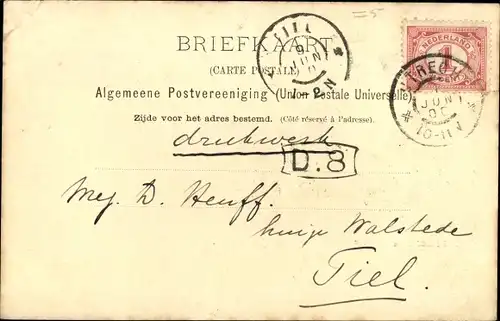 =5
BRIEFKAART
(CARTE POSTALE)
Algemeene Postvereeniging (Union Postale Universelle)
Zijde voor het adres bestemd. (Côté réservé à l'adresse).
drukwerk
D.8
Mej. D. Heuff.
huize Walstede
Tiel.
TIEL
9
JUNI
2N
NEDERLAND
1
UTRECHT
JUNI
00
10-11V